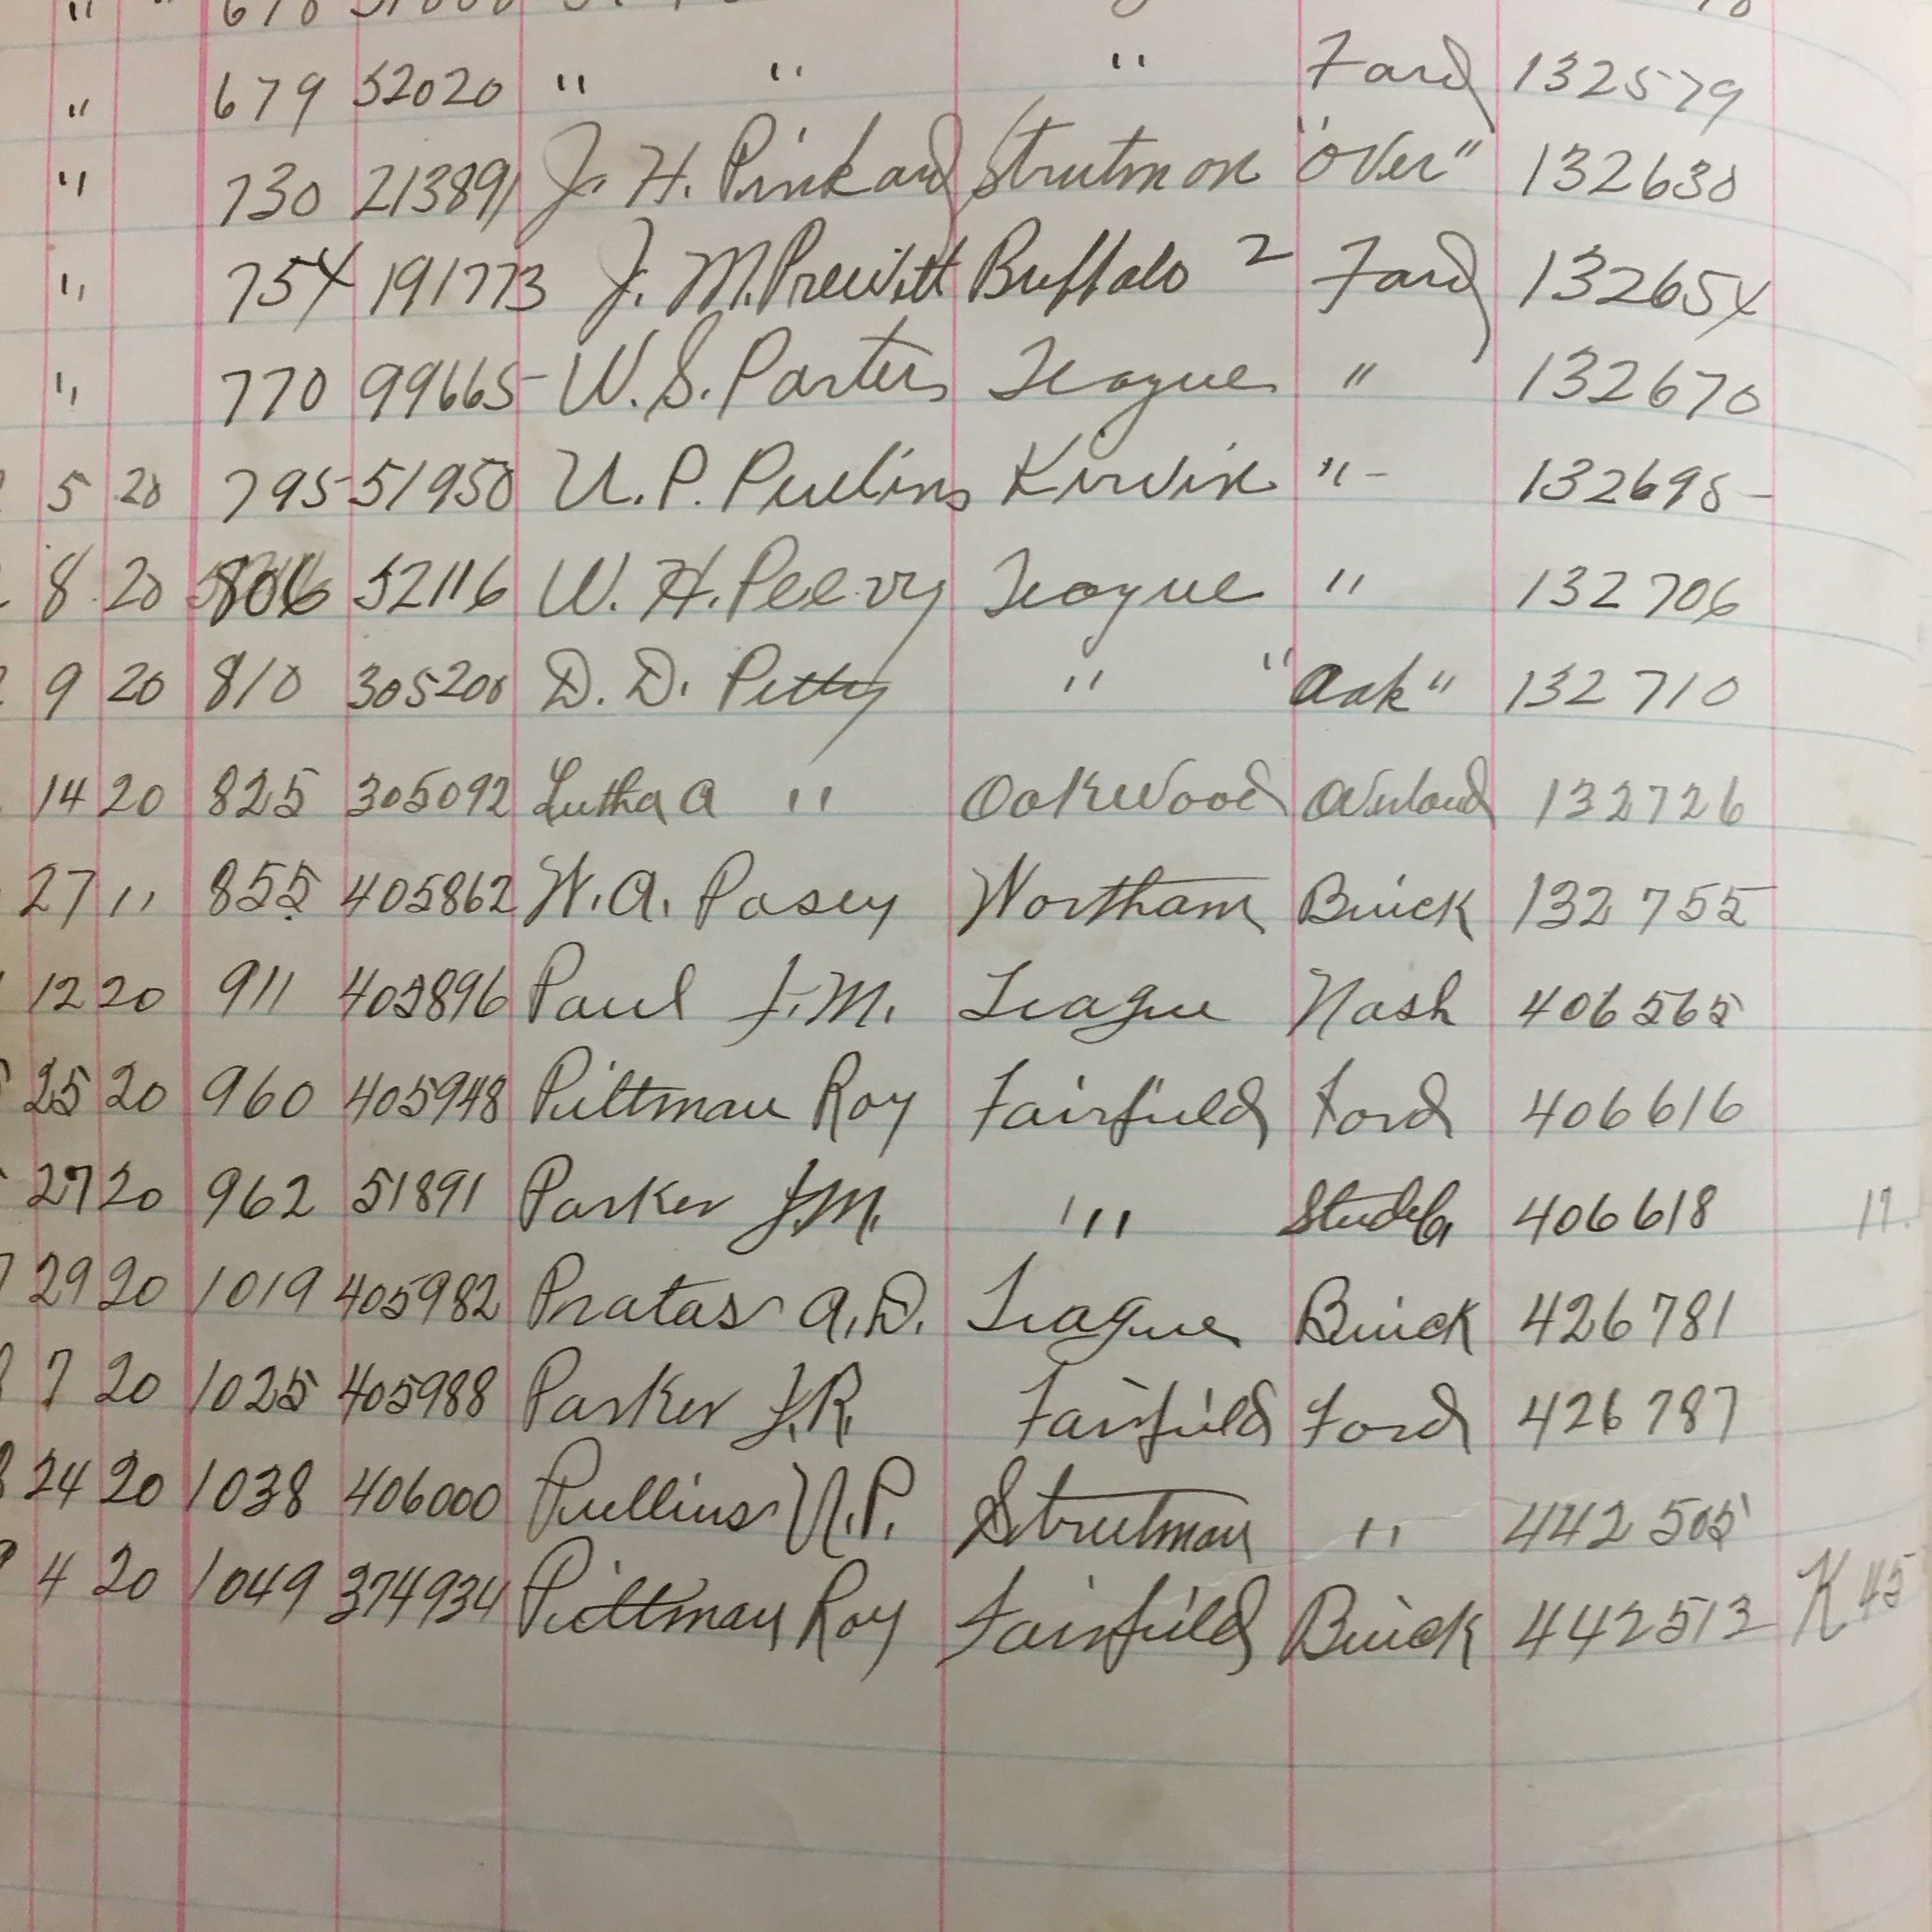 " 679 52020 " " " Ford 132579
" 730 213891 J. H. Pinkard Strutmon "over" 132630
" 754 191773 J. M. Prewitt Buffalo 2 Ford 132654
" 770 99665 W. S. Porter Teague " 132670
5 20 795 51950 U. P. Pullins Kirvin " 132695
8 20 806 52116 W. H. Peevy Teague " 132706
9 20 810 305200 D. D. Petty " "Oak" 132710
14 20 825 305092 Lutha a " Oakwood Overland 132726
27 " 855 405862 W. A. Posey Wortham Buick 132755
12 20 911 405896 Paul J. M. Teague Nash 406565
25 20 960 405948 Pittman Roy Fairfield Ford 406616
27 20 962 51891 Parker J. M. " Studeb. 406618 11.
29 20 1019 405982 Pratas A. D. Teague Buick 426781
7 20 1025 405988 Parker J. R. Fairfield Ford 426787
24 20 1038 406000 Pullins U. P. Strutman " 442505
4 20 1049 374934 Pittman Roy Fairfield Buick 442513 K 45